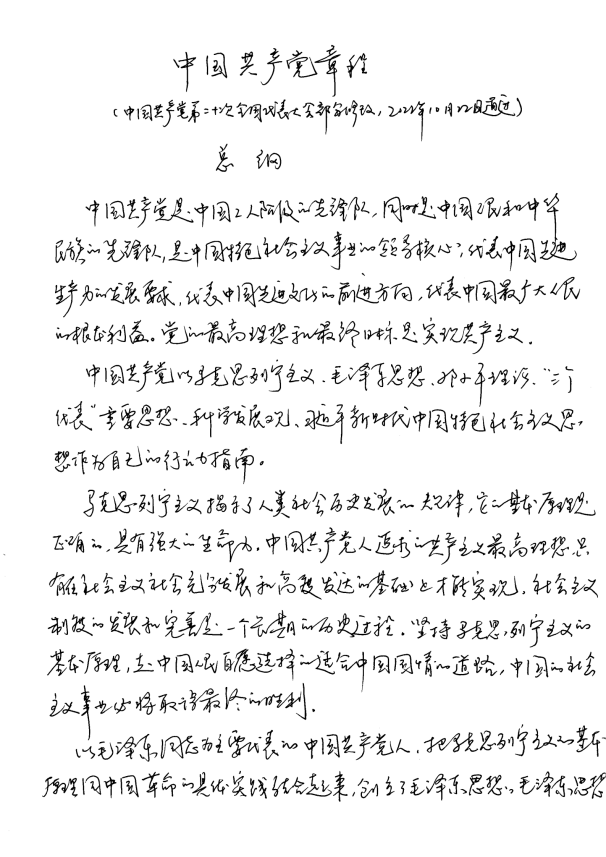 中国共产党章程
(中国共产党第二十次全国代表大会部分修改,2022年10月22日通过)
总 纲
中国共产党是中国工人阶级的先锋队,同时是中国人民和中华
民族的先锋队,是中国特色社会主义事业的领导核心,代表中国先进
生产力的发展要求,代表中国先进文化的前进方向,代表中国最广大人民
的根本利益。党的最高理想和最终目标是实现共产主义.
中国共产党以马克思列宁主义、毛泽东思想、邓小平理论、“三个
代表”重要思想、科学发展观、习近平新时代中国特色社会主义思
想作为自己的行动指南。
马克思列宁主义揭示了人类社会历史发展的规律,它的基本原理是
正确的,具有强大的生命力.中国共产党人追求的共产主义最高理想,只
有在社会主义社会充分发展和高度发达的基础上才能实现.社会主义
制度的发展和完善是一个长期的历史过程.坚持马克思列宁主义的
基本原理,走中国人民自愿选择的适合中国国情的道路,中国的社会
主义事业必将取得最终的胜利.
以毛泽东同志为主要代表的中国共产党人,把马克思列宁主义的基本
原理同中国革命的具体实践结合起来,创立了毛泽东思想。毛泽东思想